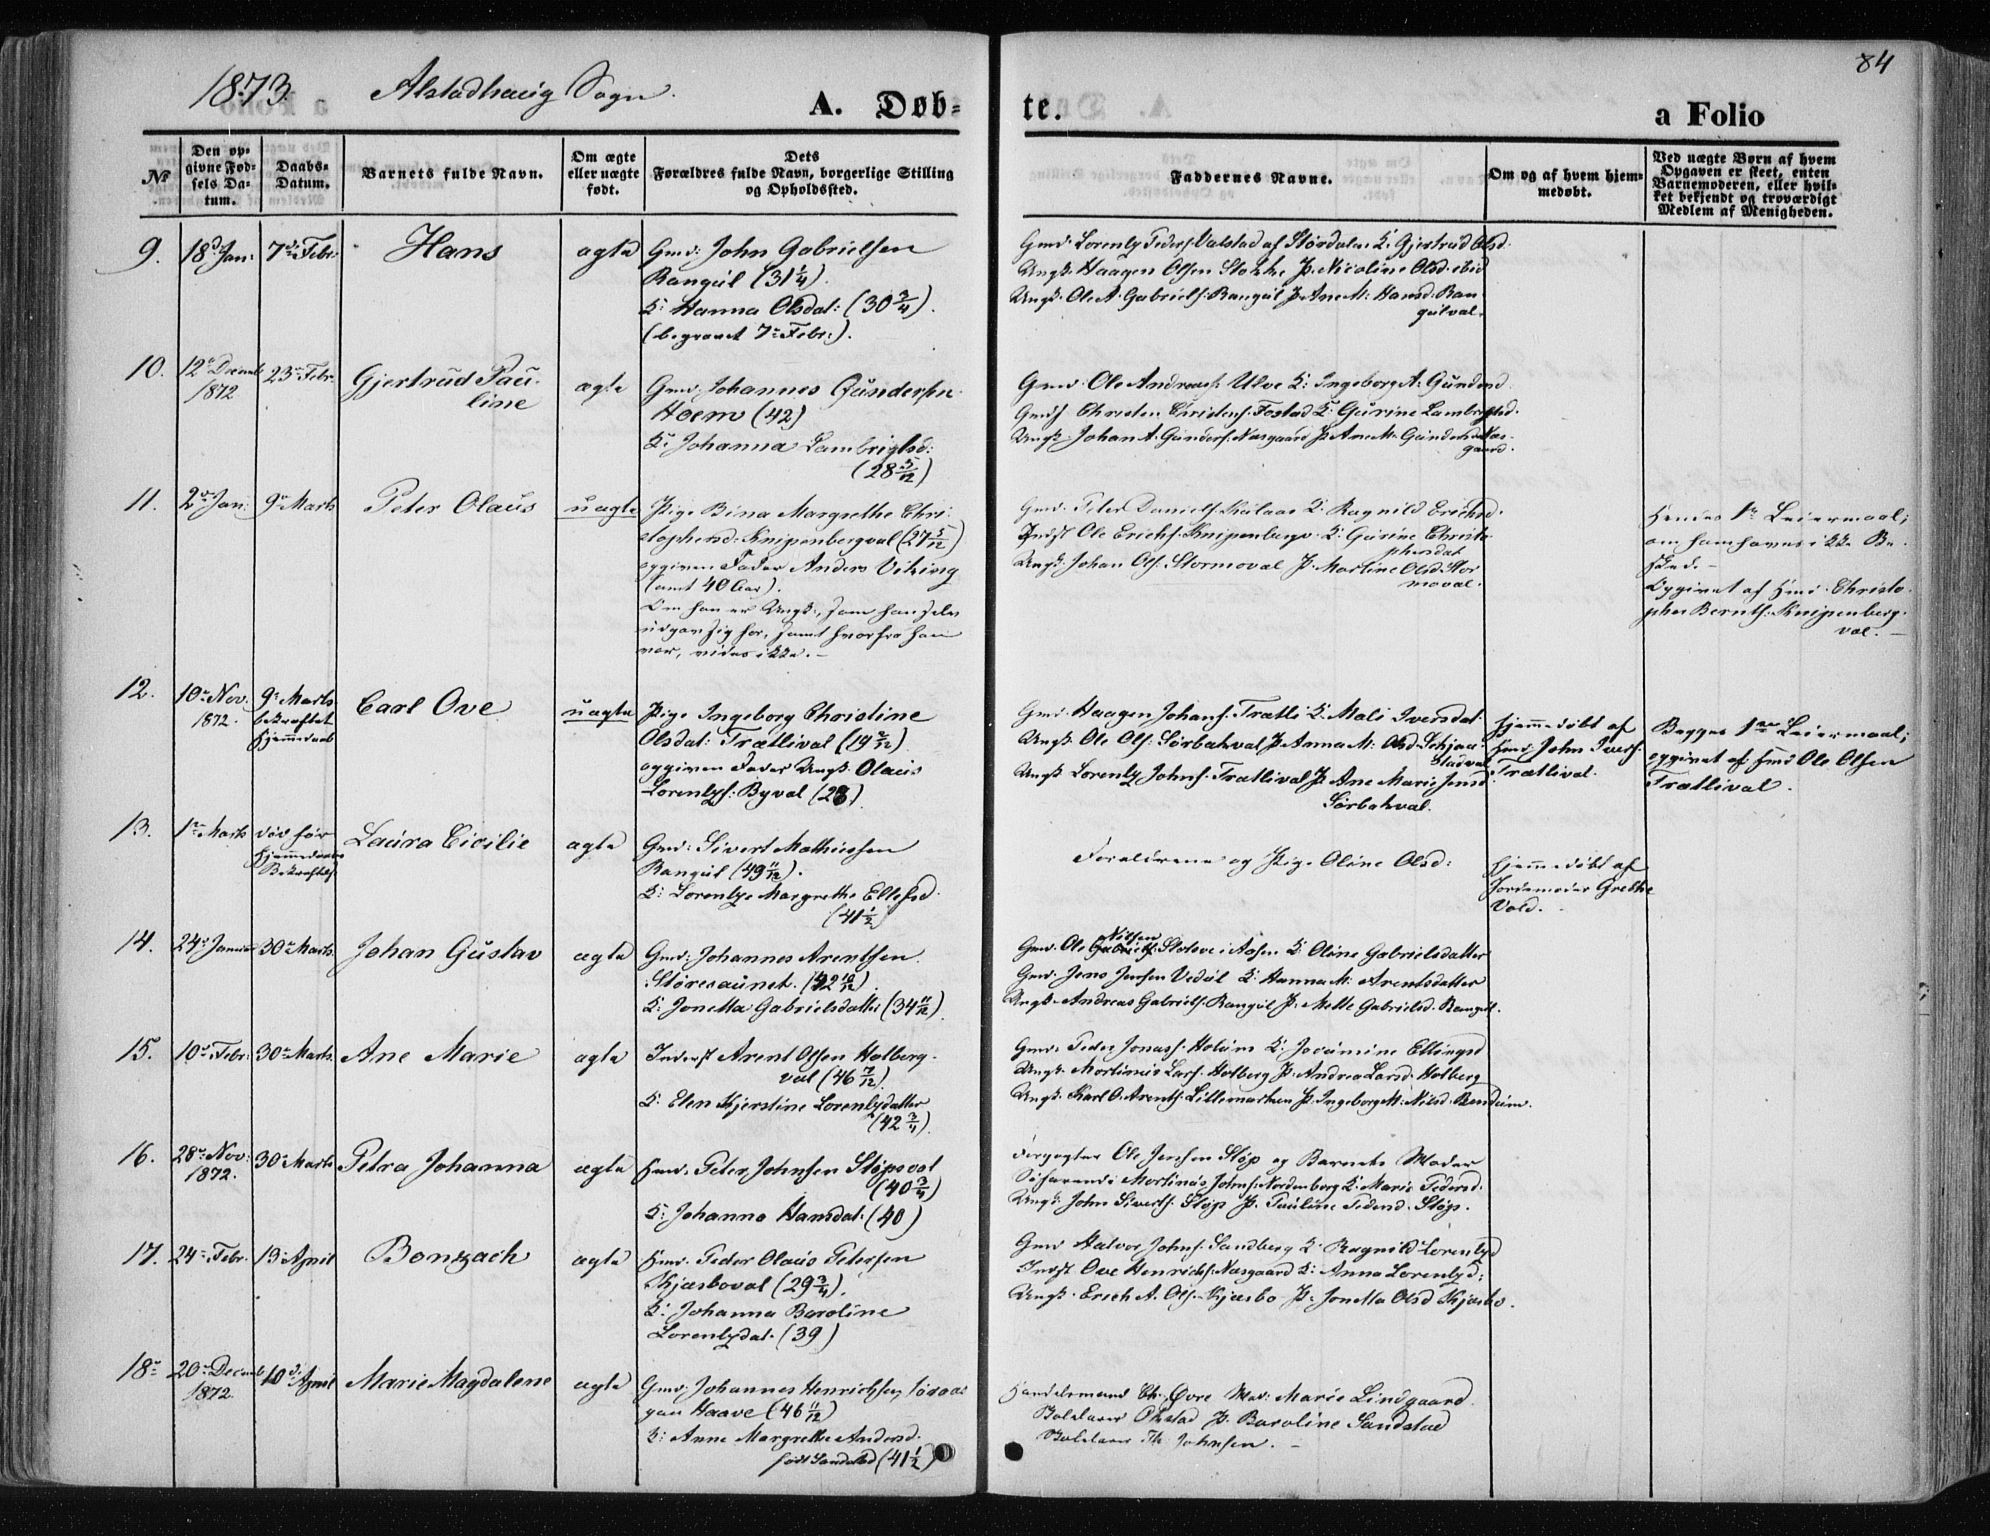 1873.
Alstadhaug Sogn.
A. Døb-
te.
a Folio
84
№
Den op-
givne Fød-
sels Da-
tum.
Daabs-
Datum.
Barnets fulde Navn.
Om ægte
eller uægte
født.
Dets
Forældres fulde Navn, borgerlige Stilling
og Opholdssted.
Faddernes Navne.
Om og af hvem hjem-
medøbt.
Ved uægte Børn af hvem
Opgaven er skeet, enten
Barnemoderen, eller hvil-
ket bekjendt og troværdigt
Medlem af Menigheden.
9.
18de Jan:
7de Febr:
Hans
ægte
Gmd: John Gabrielsen
Rangul (31 1/4).
K: Hanna Olsdat: (30 3/4).
(begravet 7de Febr:).
Gmd: Lorentz Peders: Valstad af Størdalen K: Gjertrud Olsd:
Ungk: Haagen Olsen P: Nicoline Olsd: ibid
Ungk: Ole A: Gabriels: Rangul P: Ane M: Hansd: Ran-
gulval.
10.
12te Decemb
1872
23de Febr:
Gjertrud Pau-
line
ægte
Gmd: Johannes Gundersen
Hoem (42)
K: Johanna Lambrigtsd:
(28 5/12)
Gmd: Ole Andreas: Ulve K: Ingeborg A: Gundersd:
Christen Christens: Fostad K: Gurine Lambrigtsd.
Ungk: Johan A: Gunders: Næsgaard P: Ane M: Gundersd: Næs-
gaard.
11.
2de Jan:
9de Marts
Peter Olaus
uægte
Pige Bina Margrethe Chri-
stophersd: Knipenbergval (27 5/12)
opgiven Fader Anders Viking
(omt 40 Aar).
Om han er Ungk:, som han selv
udgav sig for, samt hvorfra han
var, vides ikke.-
Gmd: Peter Daniels: K: Ragnild Erichsd:
Indst Ole Erichs: Knipenberg K: Gurine Christo-
phersdat
Ungk: Johan Ols: Stormoval P: Martine Olsd: Stor
moval.
Hendes 1ste Leiermaal;
om ham haves ikke Be-
sked.-
Opgivet af Hmd: Christo-
pher Bernts: Knipenberg-
val.-
12.
10de Nov.
1872.
9de Marts
bekræftet
Hjemmedaab
Carl Ove
uægte
Pige Ingeborg Christine
Olsdat: Trætlival (19 2/12)
opgiven Fader Ungk: Olaus
Lorentzs: Byval (28)
Gmd: Haagen Johans: Trætli K: Mali Iversdat
Ungk: Ole Ols: Sørbakval P: Anna M: Olsd: Schjau-
stadval
Ungk: Lorentz Johns: Trætlival P: Ane Marie Jensd:
Sørbakval.
Hjemmedøbt af
Hmd: John Ivers:
Trætlival.
Begges 1ste Leiermaal;
opgivet af Hmd Ole Olsen
Trætlival.
13.
1ste Marts
død før
Hjemmedaabs
Bekræftels
Laura Cicilie
ægte
Gmd: Sivert Mathiesen
Rangul (49 11/12).
K: Lorentze Margrethe Ellefsd
(41 1/2)
Forældrene og Pige Oline Olsd:
Hjemmedøbt af
Jordemoder Grethe
Vold.
14.
24de Januar
30de Marts
Johan Gustav
ægte
Gmd: Johannes Arentsen.
Støresaunet. (42 10/12)
K: Jonetta Gabrielsdatter (34 11/12)
Nilsen
Gmd: Ole Gabriels: i Aasen K: Oline Gabrielsdatter
Gmd: Jens Jensen Vedul K: Hanna M: Arentsdatter
Ungk: Andreas Gabriels: Rangul P: Mette Gabrielsd: Rangul.
15.
10de Febr:
30de Marts
Ane Marie
ægte
Inderst Arent Olsen Holberg-
val (46 7/12)
K: Elen Kjerstine Lorentzdatter
(42 3/4)
Gmd: Peder Jonas: Holum K: Jocumine Ellingsd
Ungk: Mortinus Lars: Holberg P: Andrea Larsd: Holberg
Ungk: Karl O: Arents: Lillemarken P: Ingeborg M: Nilsd:
16.
28de Nov:
1872.
30de Marts
Petra Johanna
ægte
Hmd: Peter Johnsen Støpsval
(40 3/4)
K: Johanna Hansdat: (40)
Ole Jensen Støp og Barnets Moder
Søfarende Martinus Johns: Nordenborg K: Marie Pedersd.
Ungk: John Siverts: Støp P: Pauline Pedersd: Støp.
17.
24de Febr:
13de April
Bonzach
ægte
Hmd: Peder Olaus Petersen
Kjæsboval (29 3/4)
K: Johanna Baroline
Lorentzdat: (39)
Gmd Halvor Johns: Sandberg K: Ragnild Lorentzd
Indst Ove Henrichs: Næsgaard K: Anna Lorentzd:
Ungk: Erich A. Ols: Kjæsbo P: Jonetta Olsd Kjæsbo.
18de
20de Decemb
1872.
10de April
Marie Magdalene
ægte
Gmd: Johannes Henrichsen,
Haave (46 11/12)
K: Anne Margrethe Andersd:
født Sandstad (41 1/2)
Handelsmand Ch: Øvre Mad: Marie Lindgaard
Okstad P: Baroline Sandstad
Th: Johnsen.-